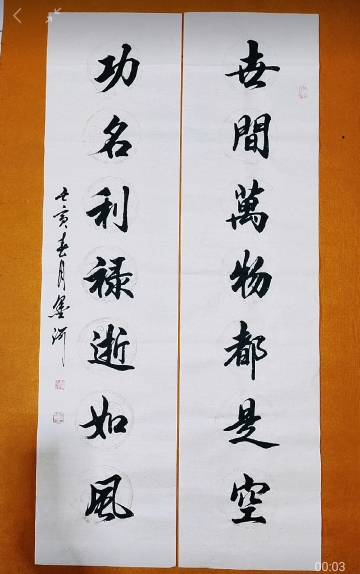 世間萬物都是空
功名利禄逝如風
亥春月墨河
00:03